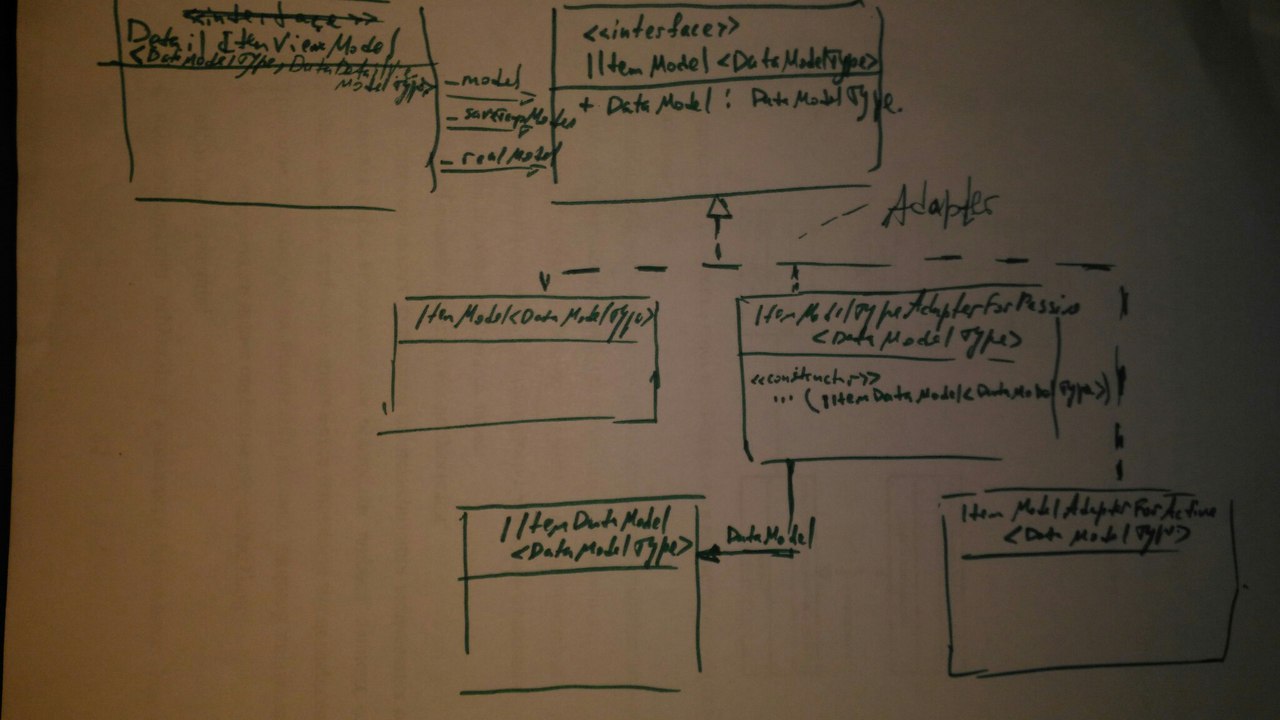 Detail ItemViewModel
<DataModelType, DataDetail
ModelType>
_model
_realModel
<<interface>>
IItemModel <DataModelType>
+ DataModel : DataModelType.
Adapter
ItemModel<DataModelType>
ItemModelTypeAdapterForPassiv
<DataModelType>
<<constructor>>
... (IItemDataModel<DataModelType>)
IItemDataModel
<DataModelType>
DataModel
Item ModelAdapterForActive
<DataModelType>